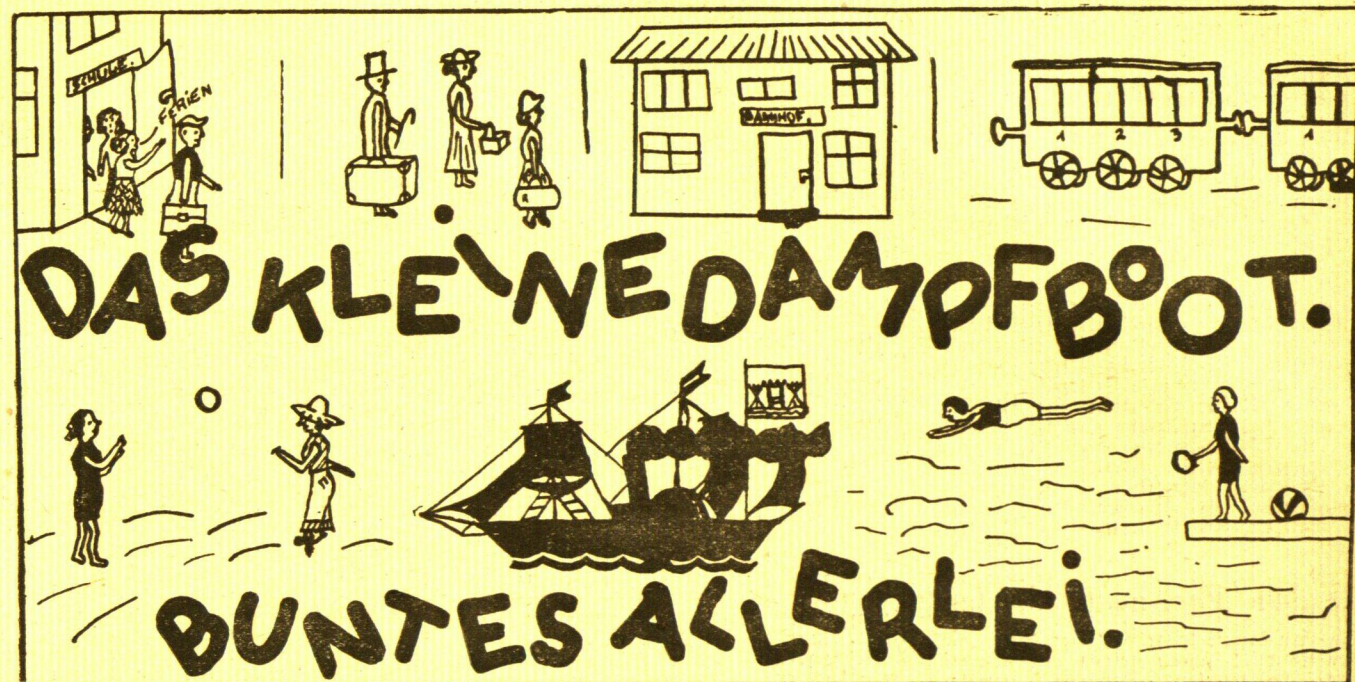 SCHULE.
FERIEN
BAHNHOF.
1 2 3 1
DAS KLEINE DAMPFBOOT.
BUNTES ALLERLEI.